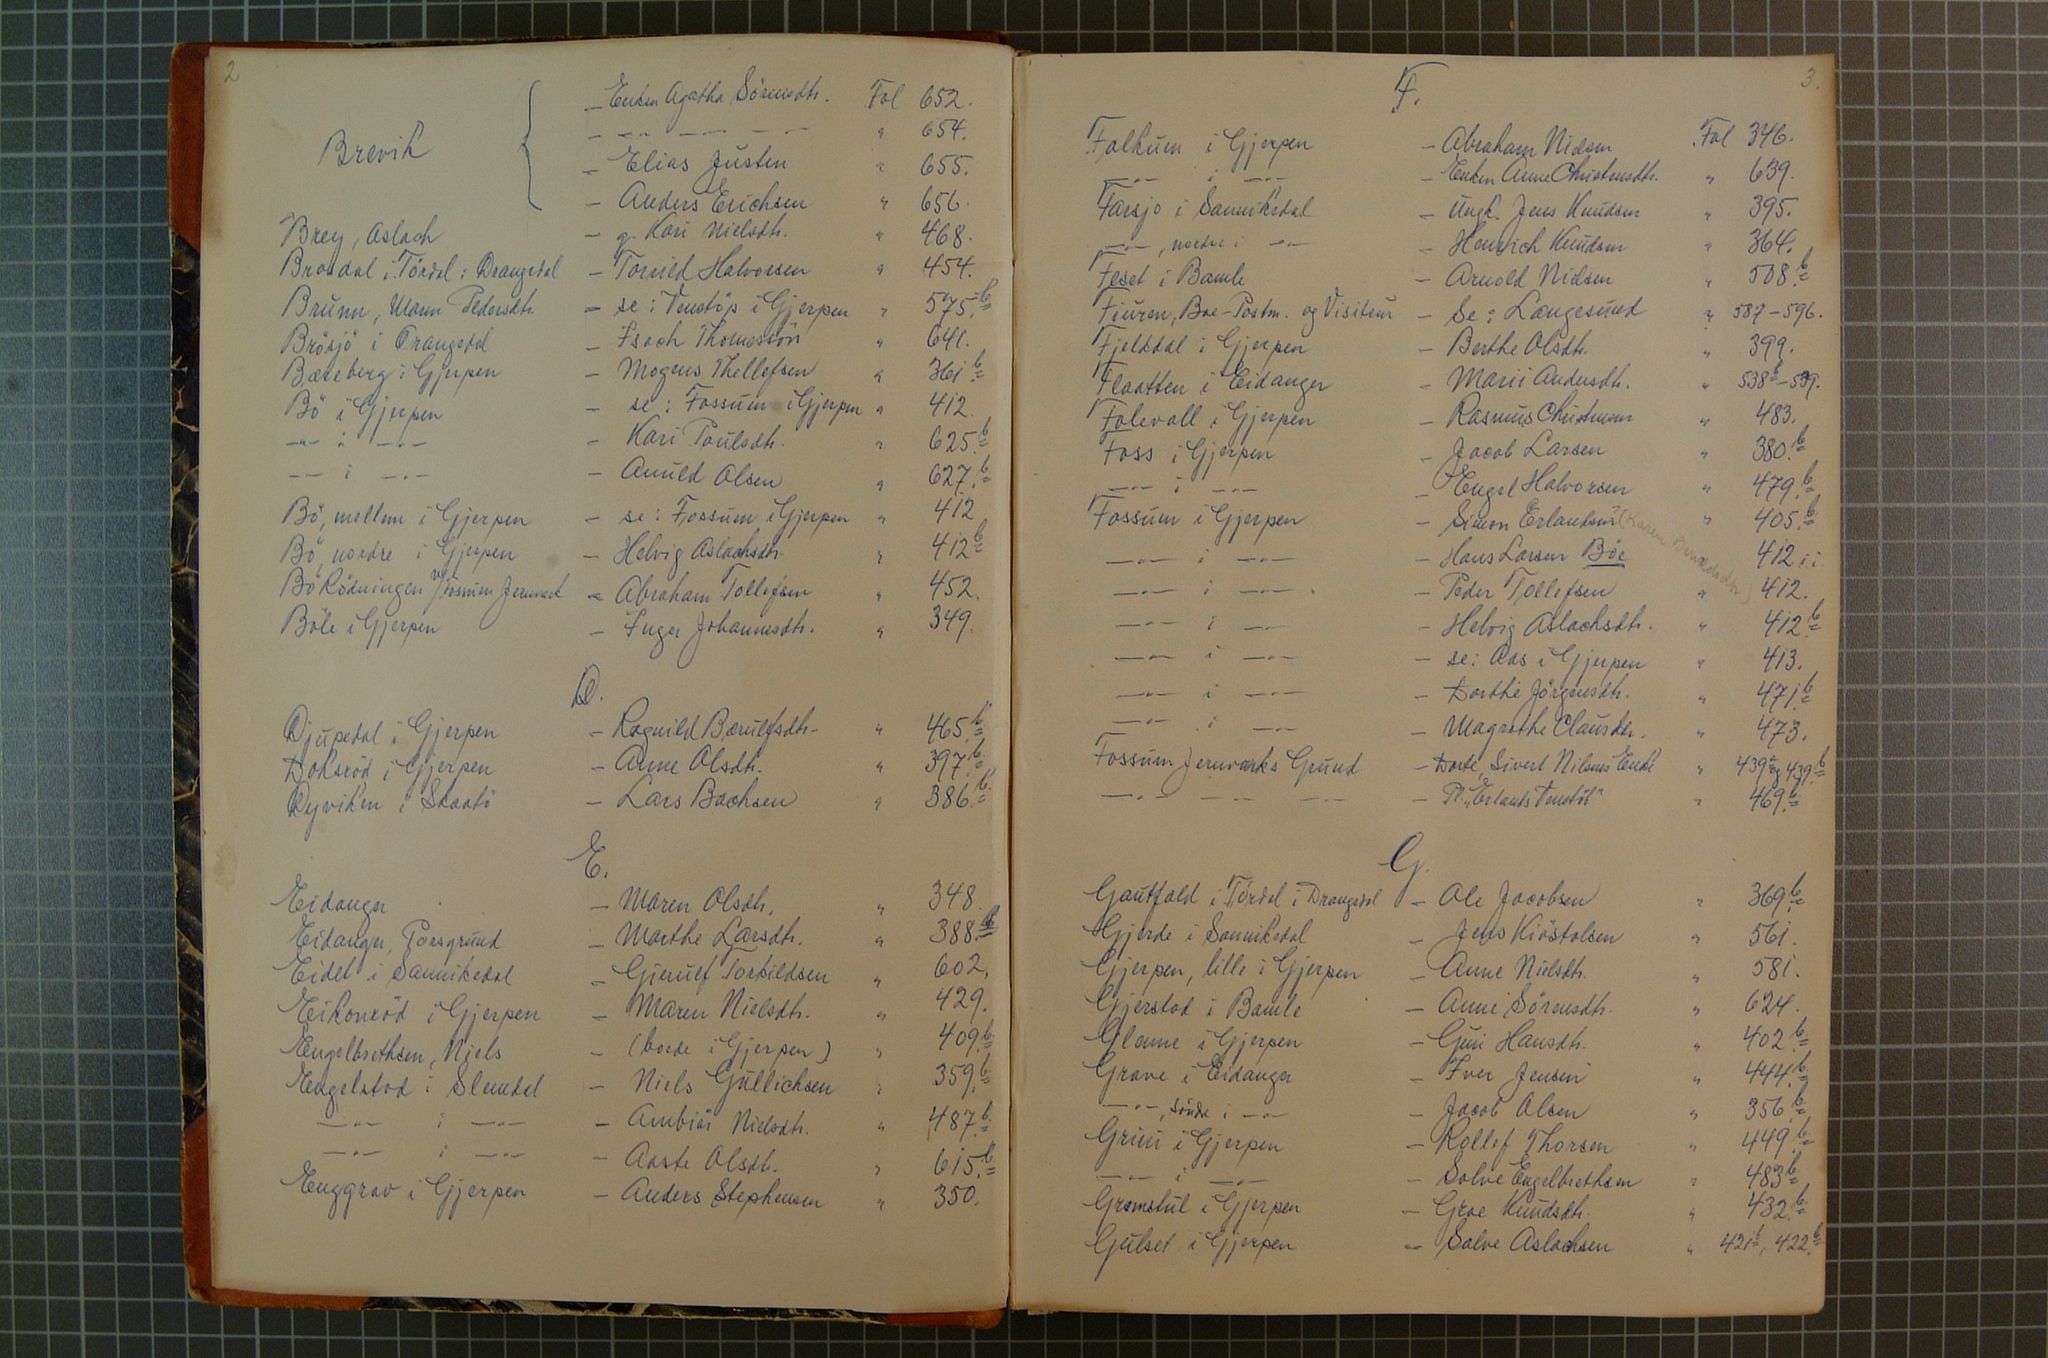 2
Brevik { - Enken Agatha Sörensdtr. Fol 652.
- -"- -"- -"- " 654.
- Elias Justen " 655.
- Anders Erichsen " 656.
Brey, Aslach - g. Kari Nielsdtr. " 468.
Brosdal i Tördal i Drangedal - Torsild Halvorsen " 454.
Brunn, Maren Pedersdtr. - se: Venstöp i Gjerpen " 575.b
Brösjö i Drangedal - Isach Thomessön " 641.
Bæreberg i Gjerpen - Mogens Thellefsen " 361 b
Bö i Gjerpen - se: Fossum i Gjerpen " 412.
-"- i -"- - Kari Poulsdtr. " 625.b
-"- i -"- - Anuld Olsen " 627.b
Bö, mellem i Gjerpen - se: Fossum i Gjerpen " 412
Bö, nordre i Gjerpen - Helvig Aslachsdtr. " 412 b
Bö Rödningen v/Fossum Jernverk - Abraham Tollefsen " 452.
Böle i Gjerpen - Inger Johannesdtr. " 349.
D.
Djupedal i Gjerpen - Ragnild Bærulfsdtr. " 465.b
Doksröd i Gjerpen - Anne Olsdtr. " 397.b
Dyviken i Skaatö - Lars Bachsen " 386.b
E.
Eidanger - Maren Olsdtr. " 348.
Eidanger, Porsgrund - Marthe Larsdtr. " 388.b
Eidet i Sannikedal - Gierulf Torkildsen " 602.
Eikonröd i Gjerpen - Maren Nielsdtr. " 429.
Engelbrethsen, Niels - (boede i Gjerpen) " 409.b
Engelstad i Slemdal - Niels Gullichsen " 359.b
-"- i -"- - Ambiör Nielsdtr. " 487.b
-"- i -"- - Aaste Olsdtr. " 615.b
Enggrav i Gjerpen - Anders Stephensen " 350.
3.
F.
Falkum i Gjerpen - Abraham Nielsen Fol 346.
-"- i -"- - Enken Anne Christensdtr. " 639.
Farsjö i Sannikedal - Ungk. Jens Knudsen " 395.
-"-, nordre i -"- - Henrich Knudsen " 364.
Feset i Bamle - Arnold Nielsen " 508.b
Fiuren, Boe-Postm. og Visiteur - Se: Langesund " 587-596.
Fjelddal i Gjerpen - Berthe Olsdtr. " 399.
Flaatten i Eidanger - Marii Andersdtr. " 538 b-539.
Folevall i Gjerpen - Rasmus Christensen " 483.
Foss i Gjerpen - Jacob Larsen " 380.b
-"- i -"- - Engel Halvorsen " 479.b
Fossum i Gjerpen - Simon Erlandsen (Karen " 405.b
-"- i -"- - Hans Larsen Böe 412 i.i
-"- i -"- - Peder Tollefsen " 412.
-"- i -"- - Helvig Aslachsdtr. " 412.b
-"- i -"- - se: Aas i Gjerpen " 413.
-"- i -"- - Dorthe Jörgensdtr. " 471.b
-"- i -"- - Magrethe Clausdtr. " 473.
Fossum Jernværks Grund - Dorte, Sivert Nilsens Enke " 439 a og 439.b
-"- -"- -"- - Pl. "Erlands Venstöb" " 469.b
G.
Gautfald i Tördal i Drangedal - Ole Jacobsen " 369.b
Gjerde i Sannikedal - Jens Kiöstolsen " 561.
Gjerpen, lille i Gjerpen - Anne Nielsdtr. " 581.
Gjerstad i Bamle - Anne Sörensdtr. " 624.
Glenne i Gjerpen - Guri Hansdtr. " 402.b
Grave i Eidanger - Iver Jensen " 444.b
-"-, söndre i -"- - Jacob Olsen " 356.b
Grini i Gjerpen - Rollef Thorsen " 449.b
-"- i -"- - Solve Engelbrethsen " 483 b
Gromstul i Gjerpen - Groe Knudsdtr. " 432.b
Gulset i Gjerpen - Solve Aslachsen " 421 b, 422.b